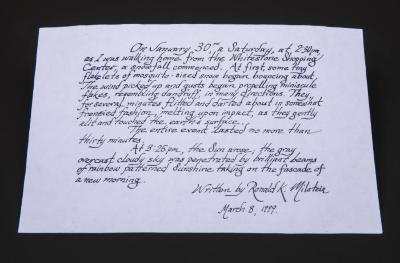 On January 30, a Saturday, at 2:30pm,
as I was walking home from the Whitestone Shopping
Center, a snowfall commenced. At first, some tiny
flecklets of mosquito-sized snow began bouncing about.
The wind picked up and gusts began propelling miniscule
flakes, resembling dandruff, in many directions. They
for several minutes flitted and darted about in somewhat
frenzied fashion, melting upon impact, as they gently
alit and touched the earth's surface.
The entire event lasted no more than
thirty minutes.
At 3:25pm, the Sun arose; the gray,
overcast cloudy sky was penetrated by brilliant beams
of rainbow patterned sunshine taking on the fascade of
a new morning.
Written by Ronald K. Milstein
March 8, 1999.